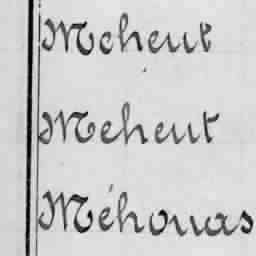 Meheut
Meheut
Méhouas